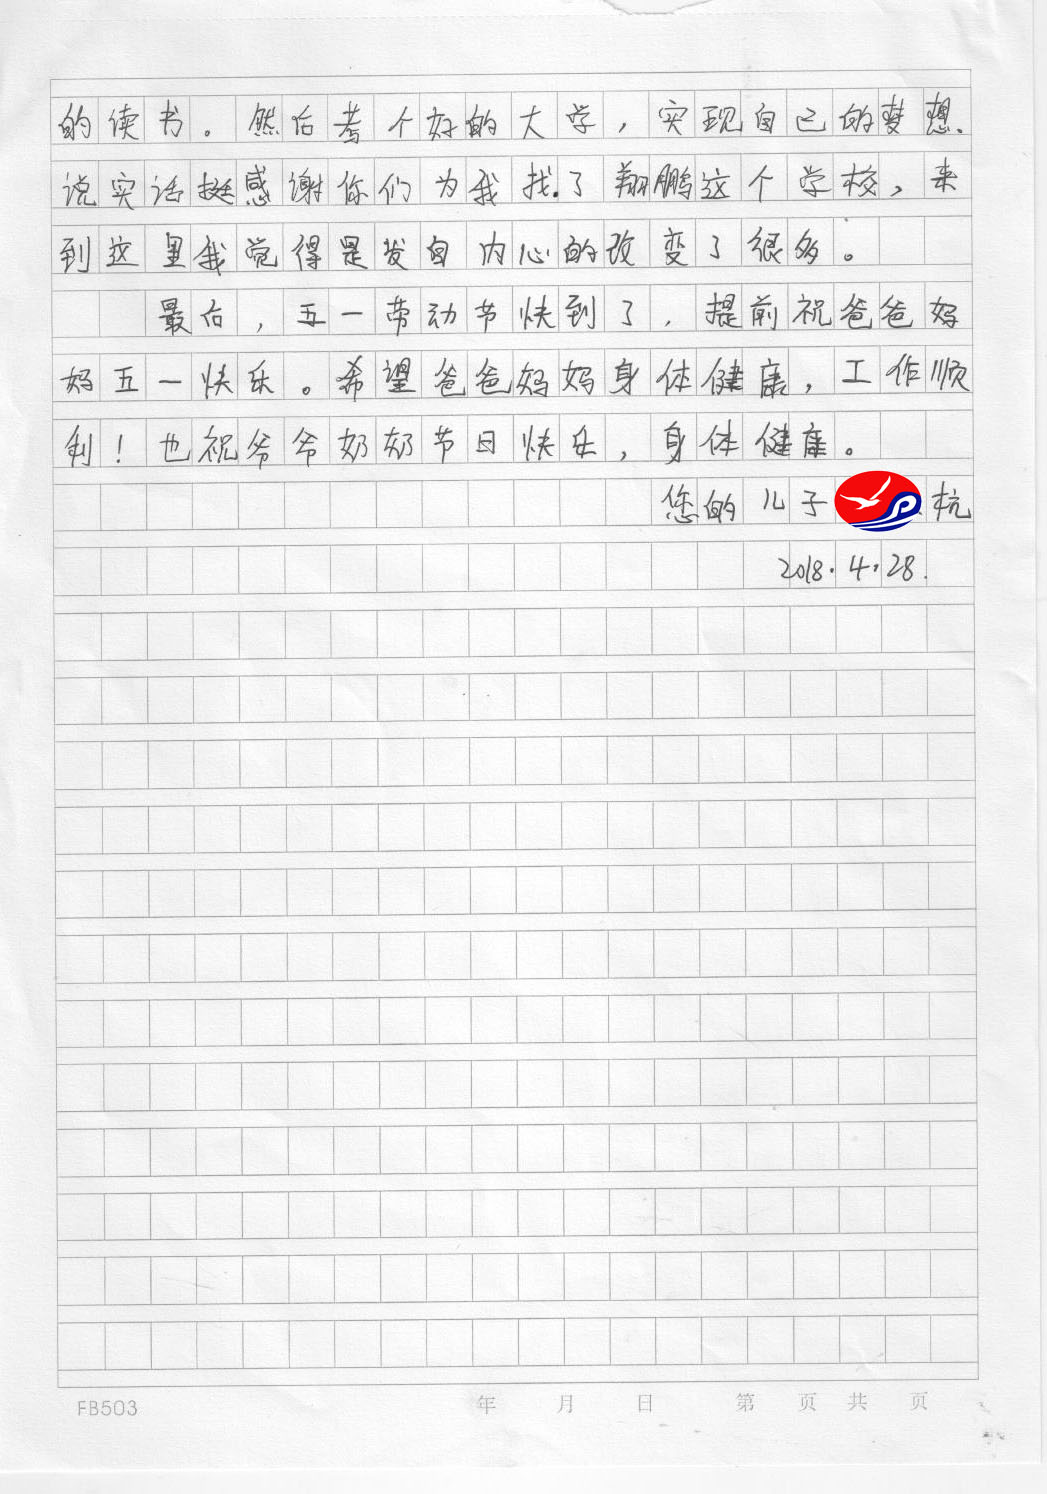 的读书。然后考个好的大学，实现自己的梦想.
说实话挺感谢你们为我找.了翔鹏这个学校，来
到这里我觉得是发自内心的改变了很多。
最后，五一劳动节快到了，提前祝爸爸妈
妈五一快乐。希望爸爸妈妈身体健康，工作顺
利！也祝爷爷奶奶节日快乐，身体健康。
您的儿子 杭
2018.4.28.
FB503 年 月 日 第 页 共 页